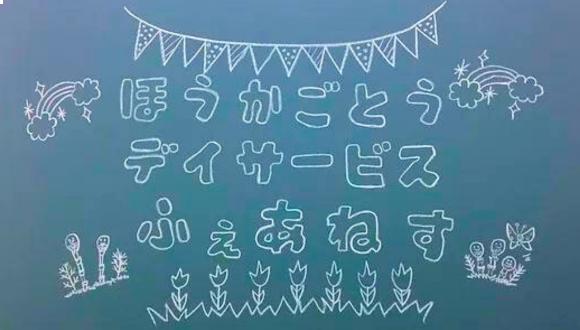 ほうかごとう
デイサービス
ふぇあねす